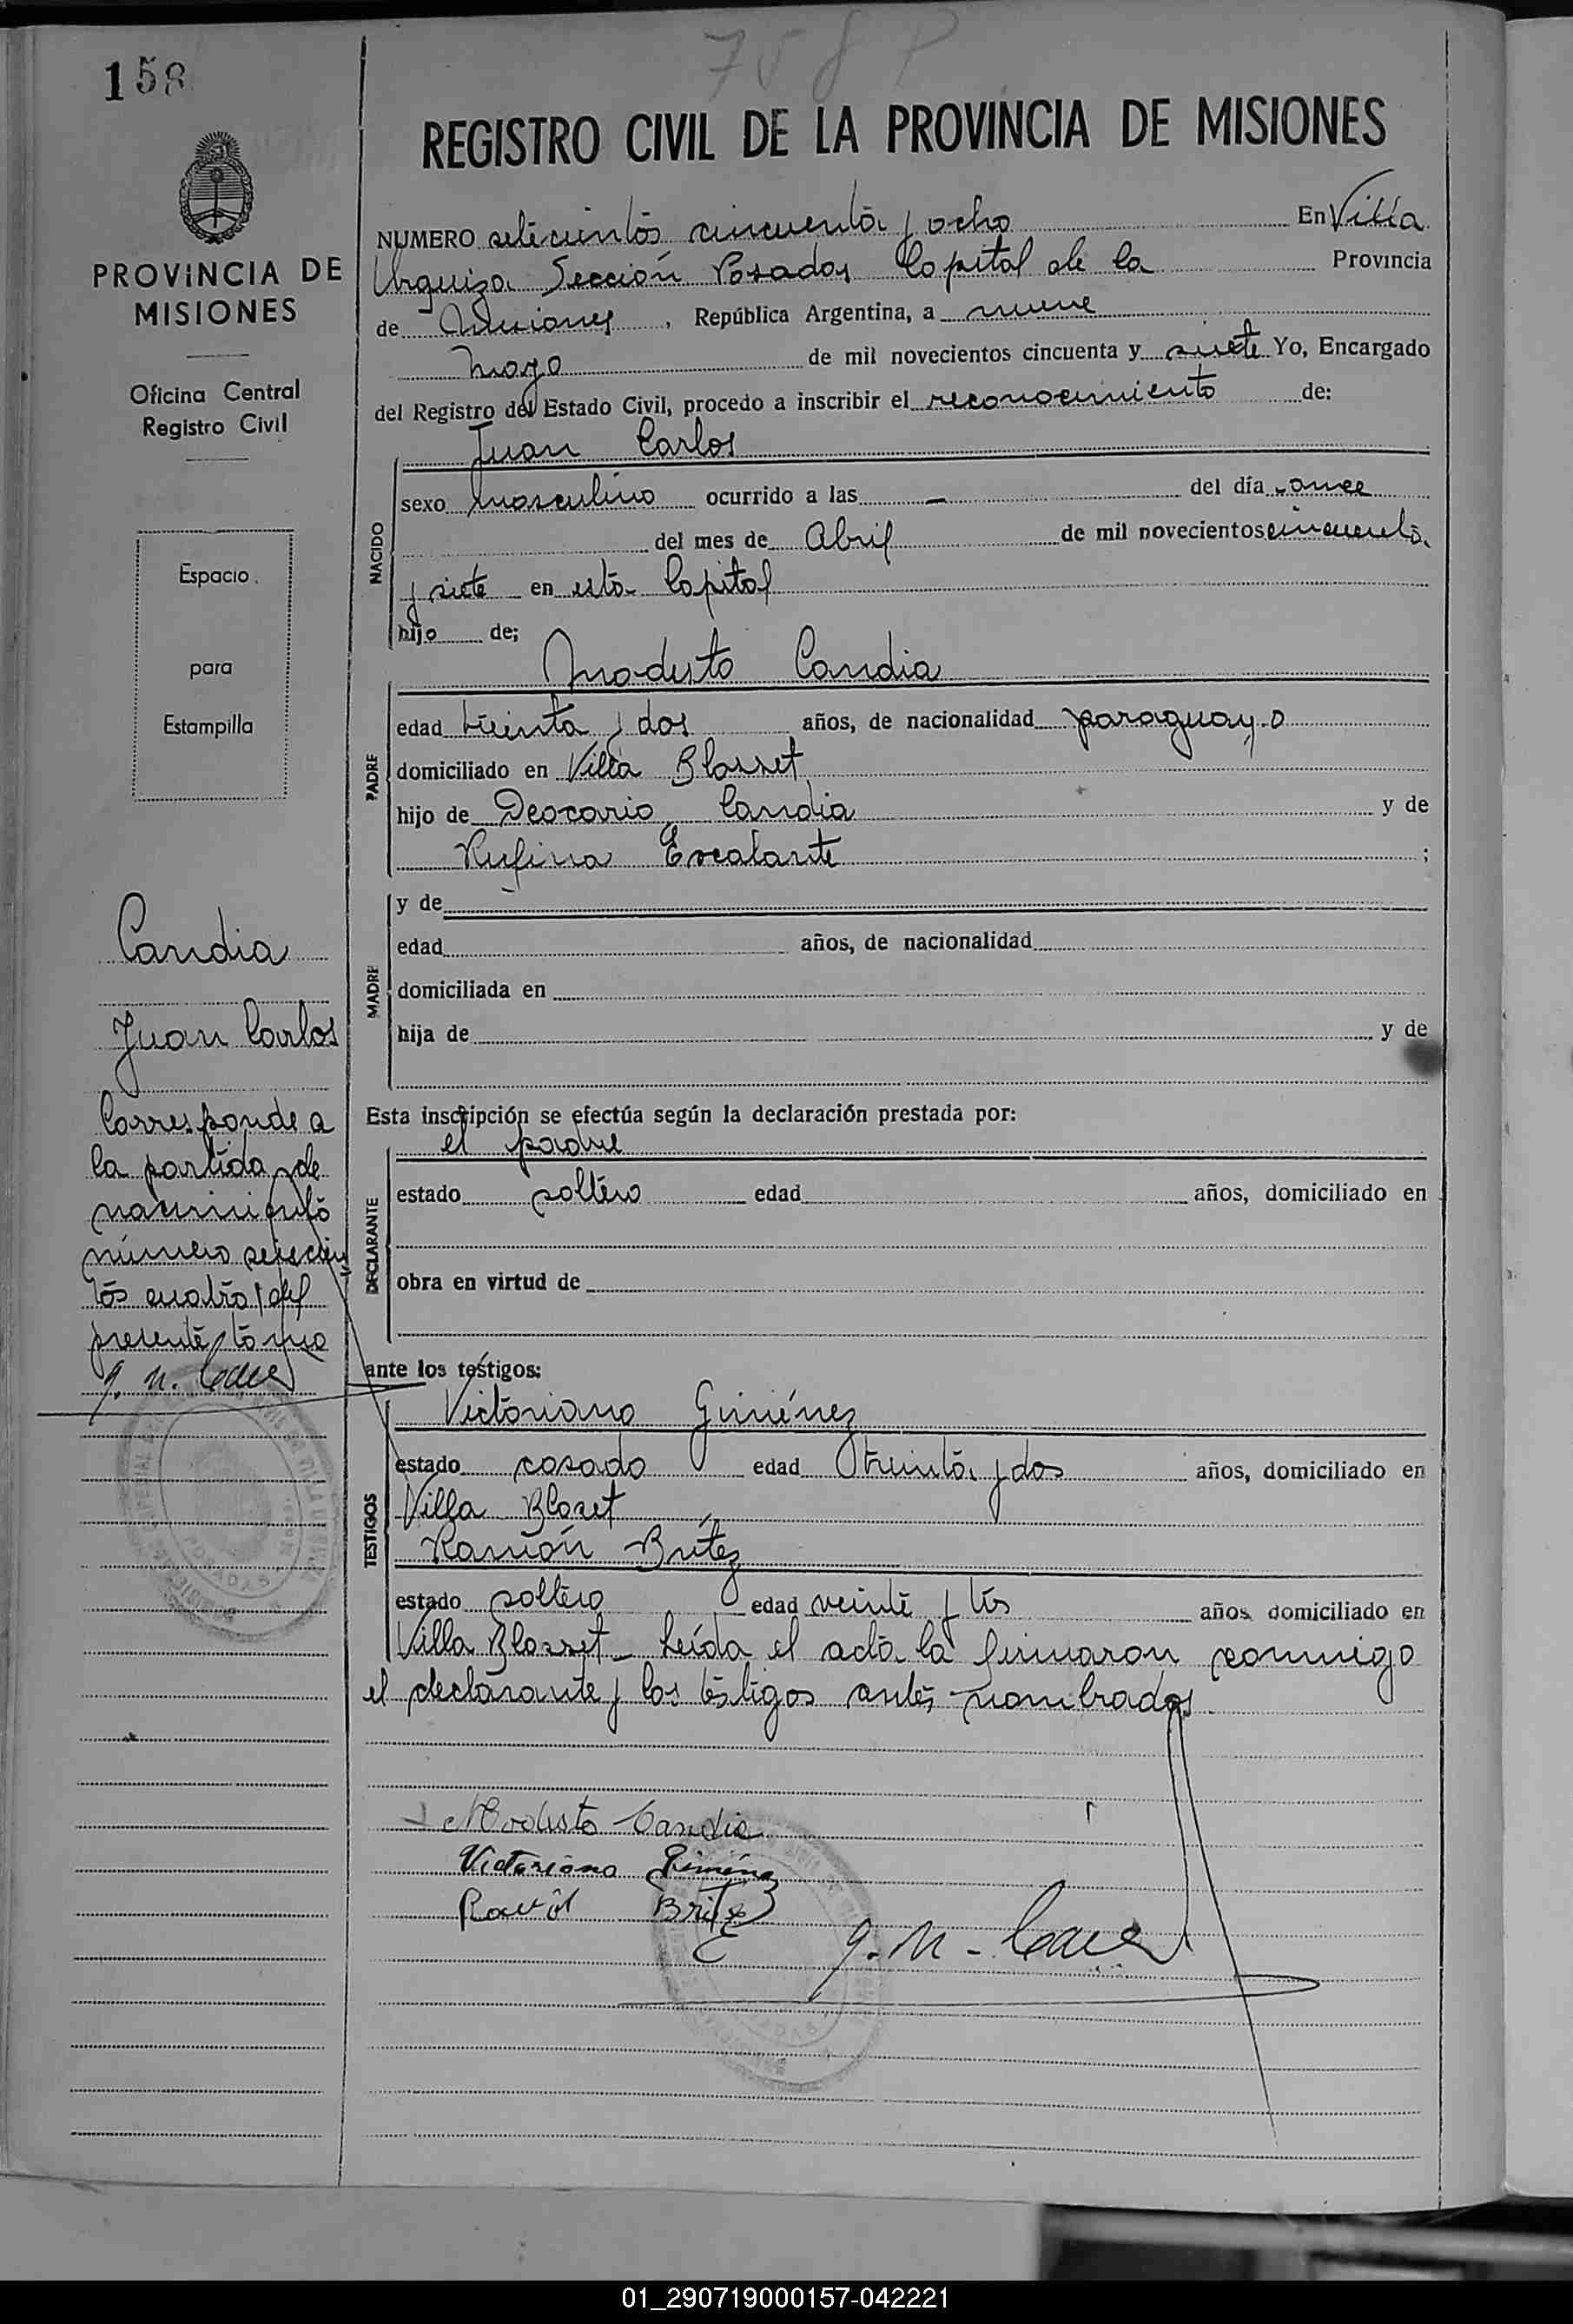 758 P
158
REGISTRO CIVIL DE LA PROVINCIA DE MISIONES
PROVINCIA DE
MISIONES
Oficina Central
Registro Civil
Espacio
para
Estampilla
NUMERO setecientos cincuenta y ocho En Villa
Urquiza Sección Posadas Capital de la Provincia
de Misiones, República Argentina, a nueve
mayo de mil novecientos cincuenta y siete Yo, Encargado
del Registro del Estado Civil, procedo a inscribir el reconocimiento de:
Juan Carlos
NACIDO
sexo masculino ocurrido a las — del día once
del mes de Abril de mil novecientos cincuenta
y siete en esta Capital
hijo de;
Modesto Candia
PADRE
edad treinta y dos años, de nacionalidad paraguayo
domiciliado en Villa Blosset
hijo de Deocario Candia y de
Rufina Escalante ;
MADRE
y de
edad años, de nacionalidad
domiciliada en
hija de y de
Esta inscripción se efectúa según la declaración prestada por:
el padre
DECLARANTE
estado soltero edad años, domiciliado en
obra en virtud de
ante los testigos:
TESTIGOS
Victoriano Giménez
estado casado edad treinta y dos años, domiciliado en
Villa Bloset
Ramón Britez
estado soltero edad veinte y tres años domiciliado en
Villa Blosset - Leída el acta la firmaron conmigo
el declarante y los testigos antes nombrados
Candia
Juan Carlos
Corresponde a
la partida de
nacimiento
número seiscien
tos cuatro del
presente tomo
Modesto Candia
Victoriano Giménez
Britez
01_290719000157-042221